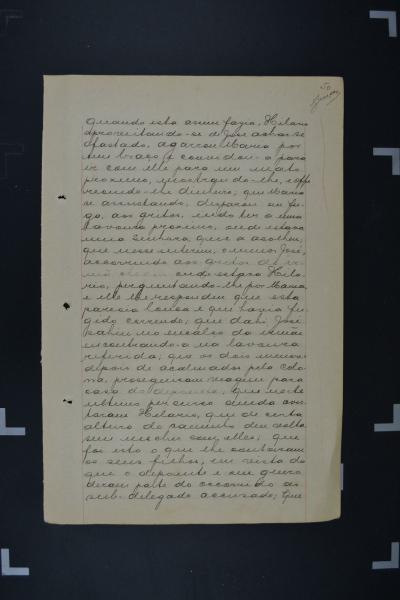 50
quando esta assim fazia, Hilario
aproveitando-se de José achar-se
afastado, agarrou Maria por
um braço e convidou-a para
ir com elle para um matto
proximo, mostrando-lhe e offe
recendo-lhe dinheiro; que Maria
se assustando, disparou em fu-
ga, aos gritos, indo ter a uma
lavoura proxima, onde estava
uma senhora, que a acolheu;
que nesse interim, o menor José,
accorrendo aos gritos de ir-
mã onde estava Hila-
rio, perguntando-lhe por Maria,
e elle lhe respondeu que esta
parecia louca e que havia fu-
gido correndo; que dahi José
sahiu no encalço da irmã
encontrando-a na lavoura
referida; que os dois menores
depois de acalmados pela colo-
na, proseguiram viagem para
casa do depoente; que neste
ultimo percurso ainda encon-
traram Hilario, que de certa
altura do caminho deu volta
sem mecher com elles; que
foi isto o que lhe contaram
os seus filhos, em vista do
que o depoente e seu genro
deram parte do occorrido ao
sub-delegado accusado; que